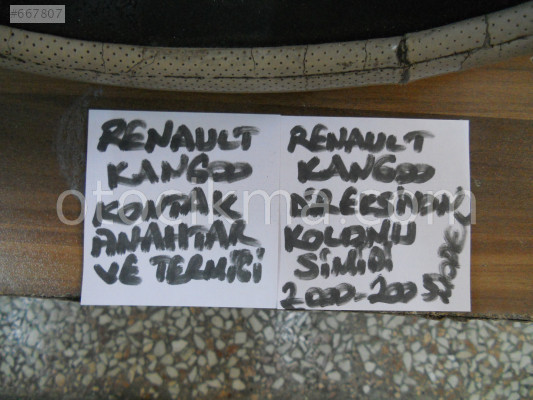 #667807
RENAULT
KANGOO
KONTAK
ANAHTAR
VE TERMİĞİ
RENAULT
KANGOO
DİREKSİYONU
KOLONU
SİMİDİ
2000-2005
MODEL
otocikma.com